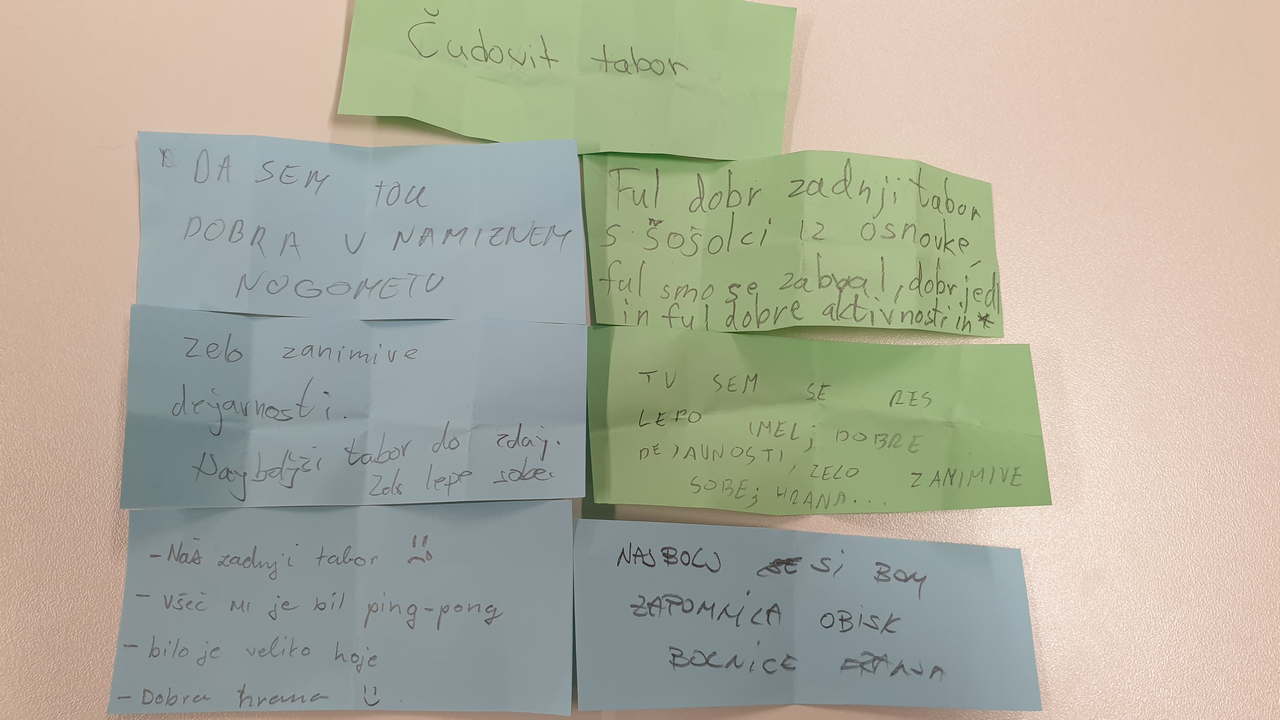 Čudovit tabor
DA SEM TOU
DOBRA V NAMIZNEM
NOGOMETU
Ful dobr zadnji tabor
s šošolci iz osnovke,
ful smo se zabval, dobr jedl
in ful dobre aktivnosti in *
Zelo zanimive
dejavnosti.
Najboljši tabor do zdaj.
Zelo lepe sobe.
TU SEM SE RES
LEPO IMEL; DOBRE
DEJAVNOSTI, ZELO ZANIMIVE
SOBE; HRANA...
- Naš zadnji tabor
- Všeč mi je bil ping-pong
- bilo je veliko hoje
- Dobra hrana
NAJBOLJ SI BOM
ZAPOMNILA OBISK
BOLNICE FRANJA